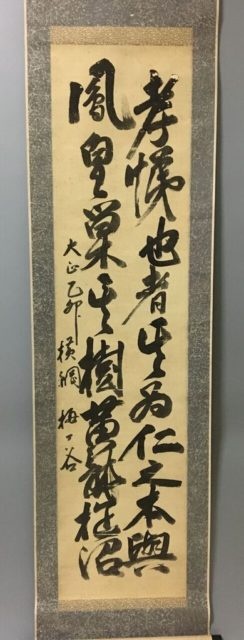 孝悌也者其為仁之本與
鳳皇巣其樹黄龍在沼
大正乙卯 横綱 梅ヶ谷